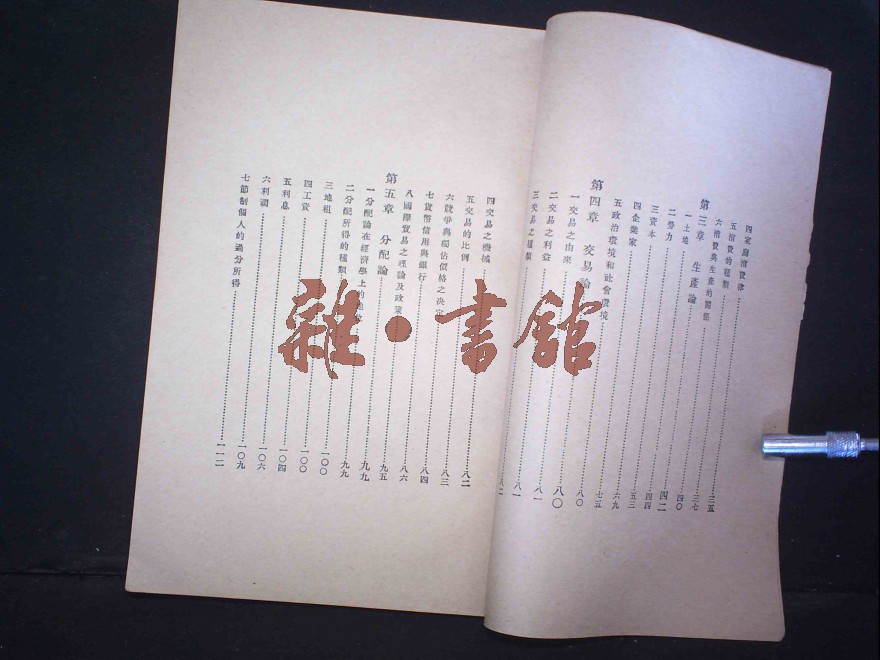 四家庭消費律……三五
五消費的種類……三七
六消費與生產的關係……四〇
第三章 生產論……四二
一土地……四四
二勞力……五三
三資本……六九
四企業家……七五
五政治環境和社會環境……八〇
第四章 交易論……八〇
一交易之由來……八一
二交易之利益……八一
三交易之種類……八二
四交易之機械……八二
五交易的比例……八三
六競爭與獨佔價格之決定……八四
七貨幣信用與銀行……八六
八國際貿易之理論及政策……九五
第五章 分配論……九九
一分配論在經濟學上的……九九
二分配所得的種類……一〇〇
三地租……一〇〇
四工資……一〇四
五利息……一〇六
六利潤……一〇九
七節制個人的過分所得……一一二
雜·書館